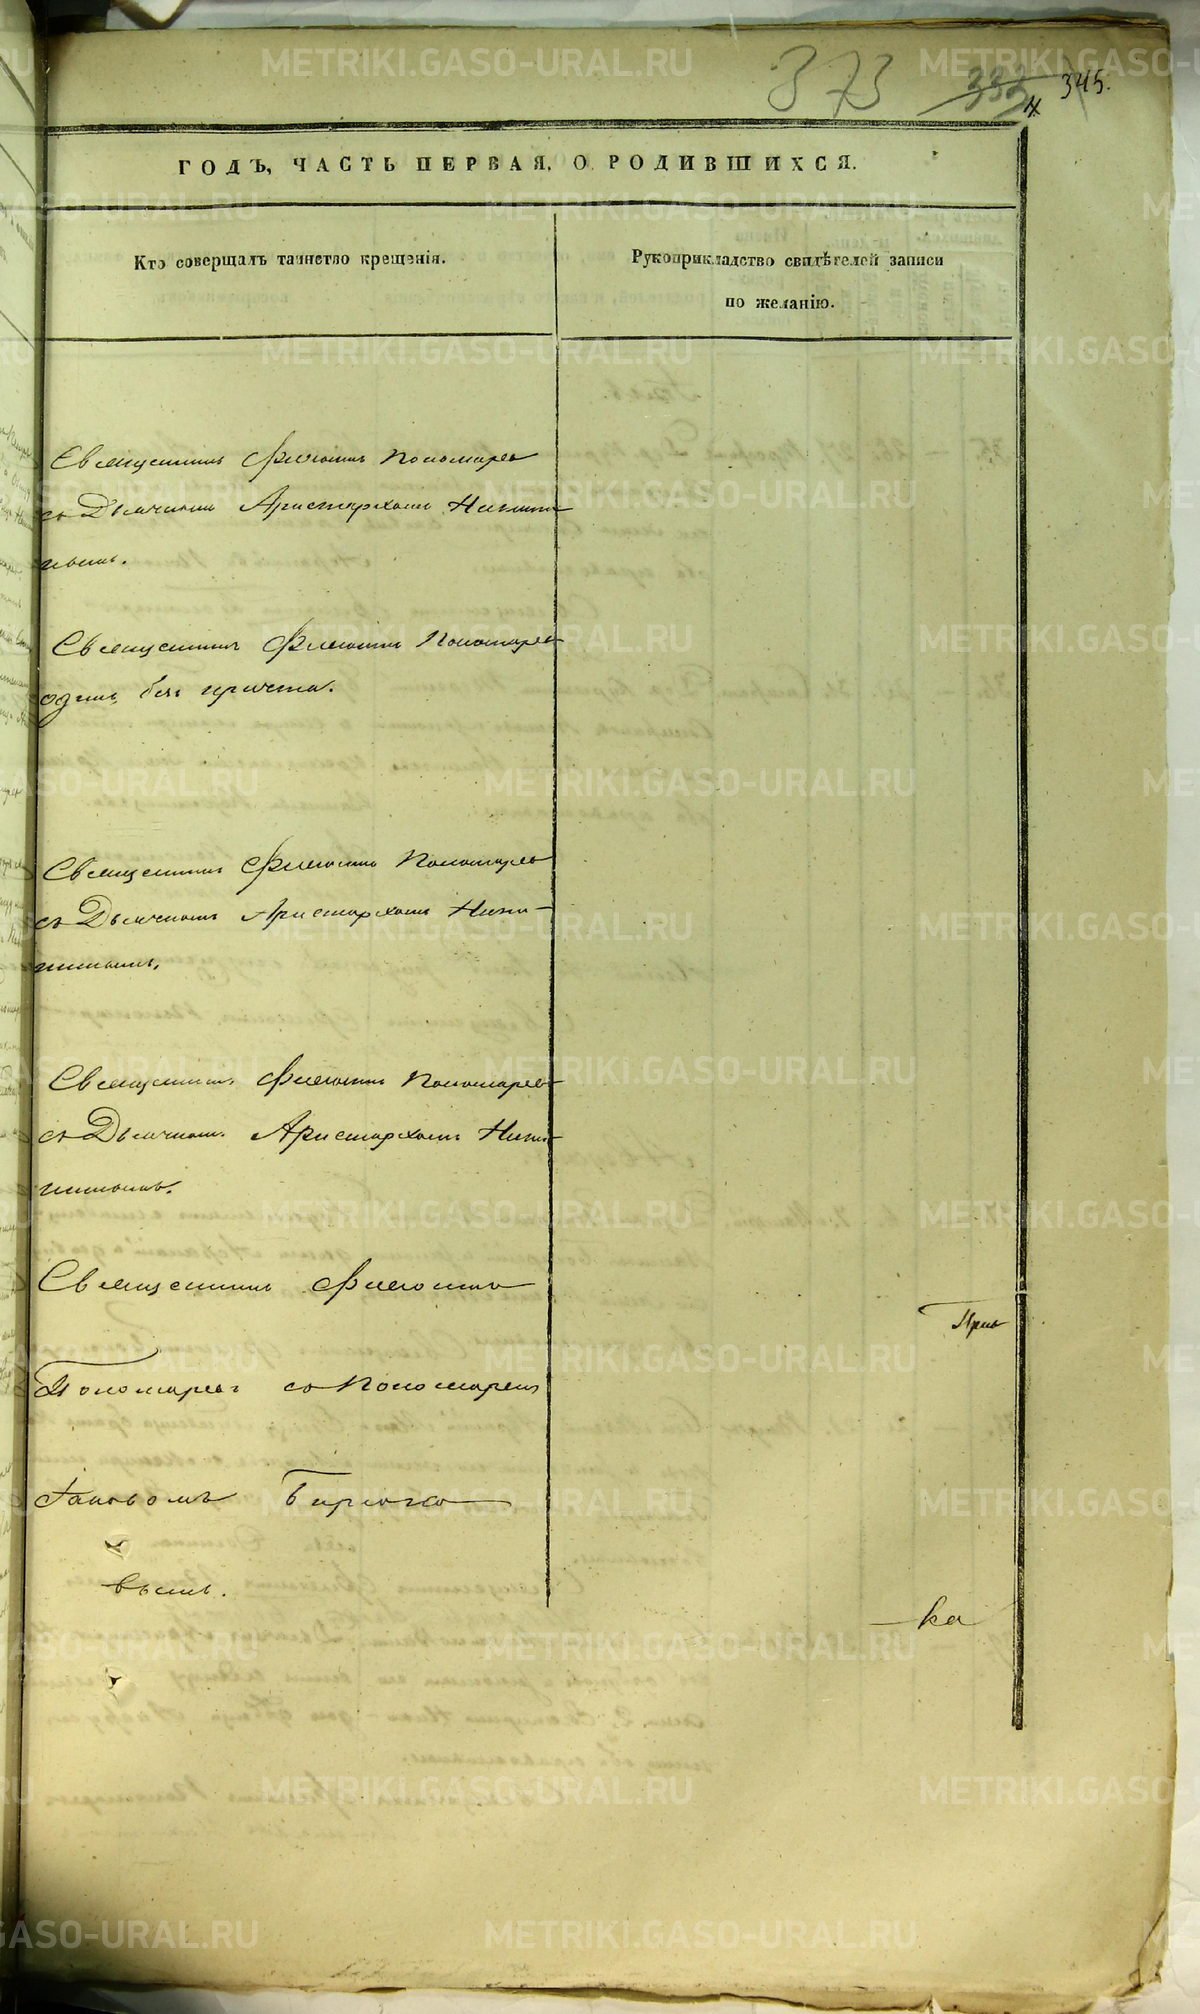 373 333 345.
ГОДЪ, ЧАСТЬ ПЕРВАЯ, О РОДИВШИХСЯ.
Кто совершалъ таинство крещенія.
Рукоприкладство свидѣтелей записи
по желанію.
Священникъ Филогоній Пономаревъ
съ Дьячкомъ Аристархомъ Никити
нымъ.
Священникъ Пономаревъ
одинъ, безъ причта.
Священникъ Пономаревъ
съ Дьячкомъ Аристархомъ Ники-
тинымъ.
Священникъ Пономаревъ
съ Дьячкомъ Аристархомъ Ники
тинымъ.
Священникъ
Пономаревъ съ Пономаремъ
Іаковомъ Бирюко
вымъ.
ка
METRIKI.GASO-URAL.RU